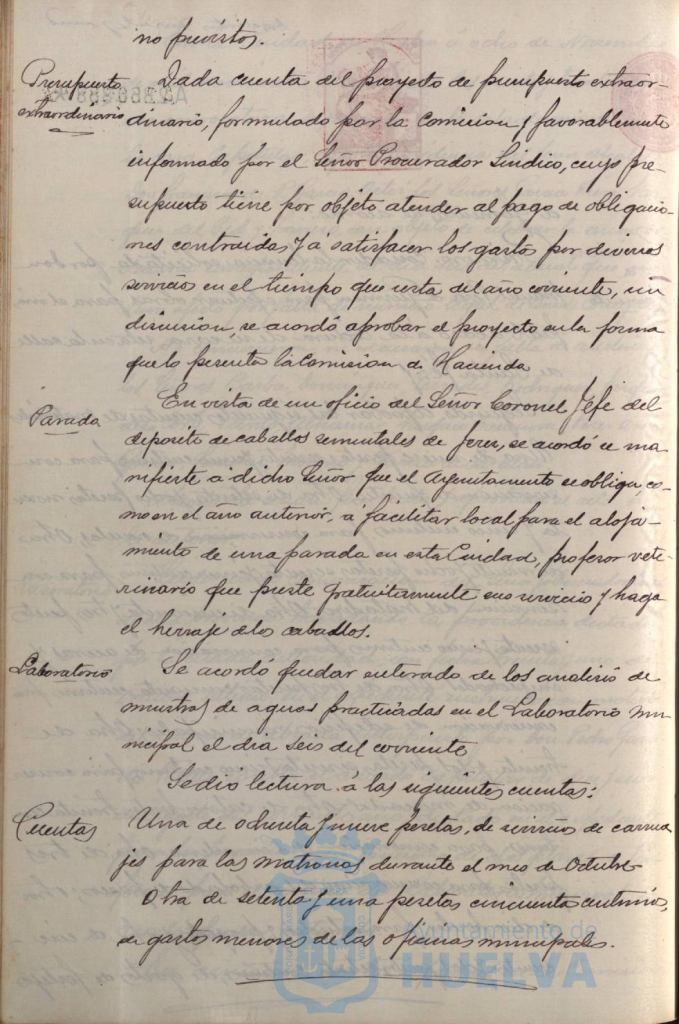 no previstos.
Presupuesto extraordinario
Dada cuenta del proyecto de presupuesto extraor-
dinario, formulado por la Comision y favorablemente
informado por el Señor Procurador Sindico, cuyo pre-
supuesto tiene por objeto atender al pago de obligacio-
nes contraidas y á satisfacer los gastos por diversos
servicios en el tiempo que resta del año corriente, sin
discusion, se acordó aprobar el proyecto en la forma
que lo presenta la Comision de Hacienda
Parada
En vista de un oficio del Señor Coronel Jefe del
deposito de caballos sementales de Jerez, se acordó se ma-
nifieste á dicho Señor que el Ayuntamiento se obliga, co-
mo en el año anterior, á facilitar local para el aloja-
miento de una parada en esta Ciudad, profesor vete-
rinario que preste gratuitamente sus servicios y haga
el herraje de los caballos.
Laboratorio
Se acordó quedar enterado de los analisis de
muestras de aguas practicadas en el Laboratorio mu-
nicipal el dia seis del corriente
Se dio lectura á las siguientes cuentas:
Cuentas
Una de ochenta y nueve pesetas, de servicios de carrua-
jes para las matronas durante el mes de Octubre
Otra de setenta y una pesetas cincuenta centimos,
de gastos menores de las oficinas municipales.
Ayuntamiento de
HUELVA